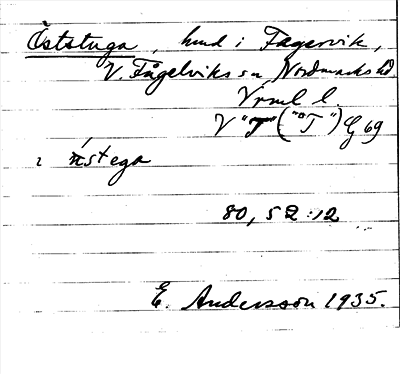 Öststuga, hmd i Fagervik,
V. Fågelviks sn, Nordmarks hd.
Vrml l.
V "T" ("T") G 69
2 östega
80, 52:12
E. Andersson 1935.